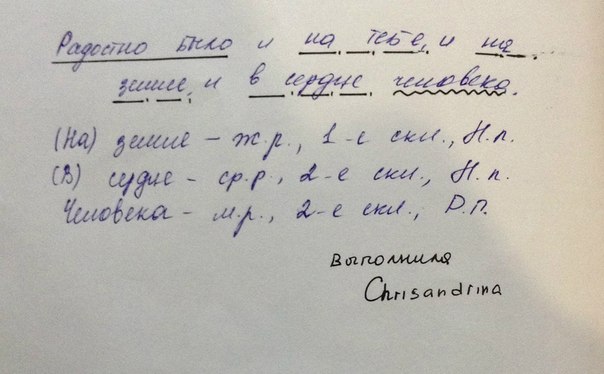 Радостно было и на небе, и на
земле, и в сердце человека.
(На) земле – ж.р., 1-е скл., П.п.
(В) сердце – ср.р., 2-е скл., П.п.
Человека – м.р., 2-е скл., Р.п.
Выполнила
Chrisandrina